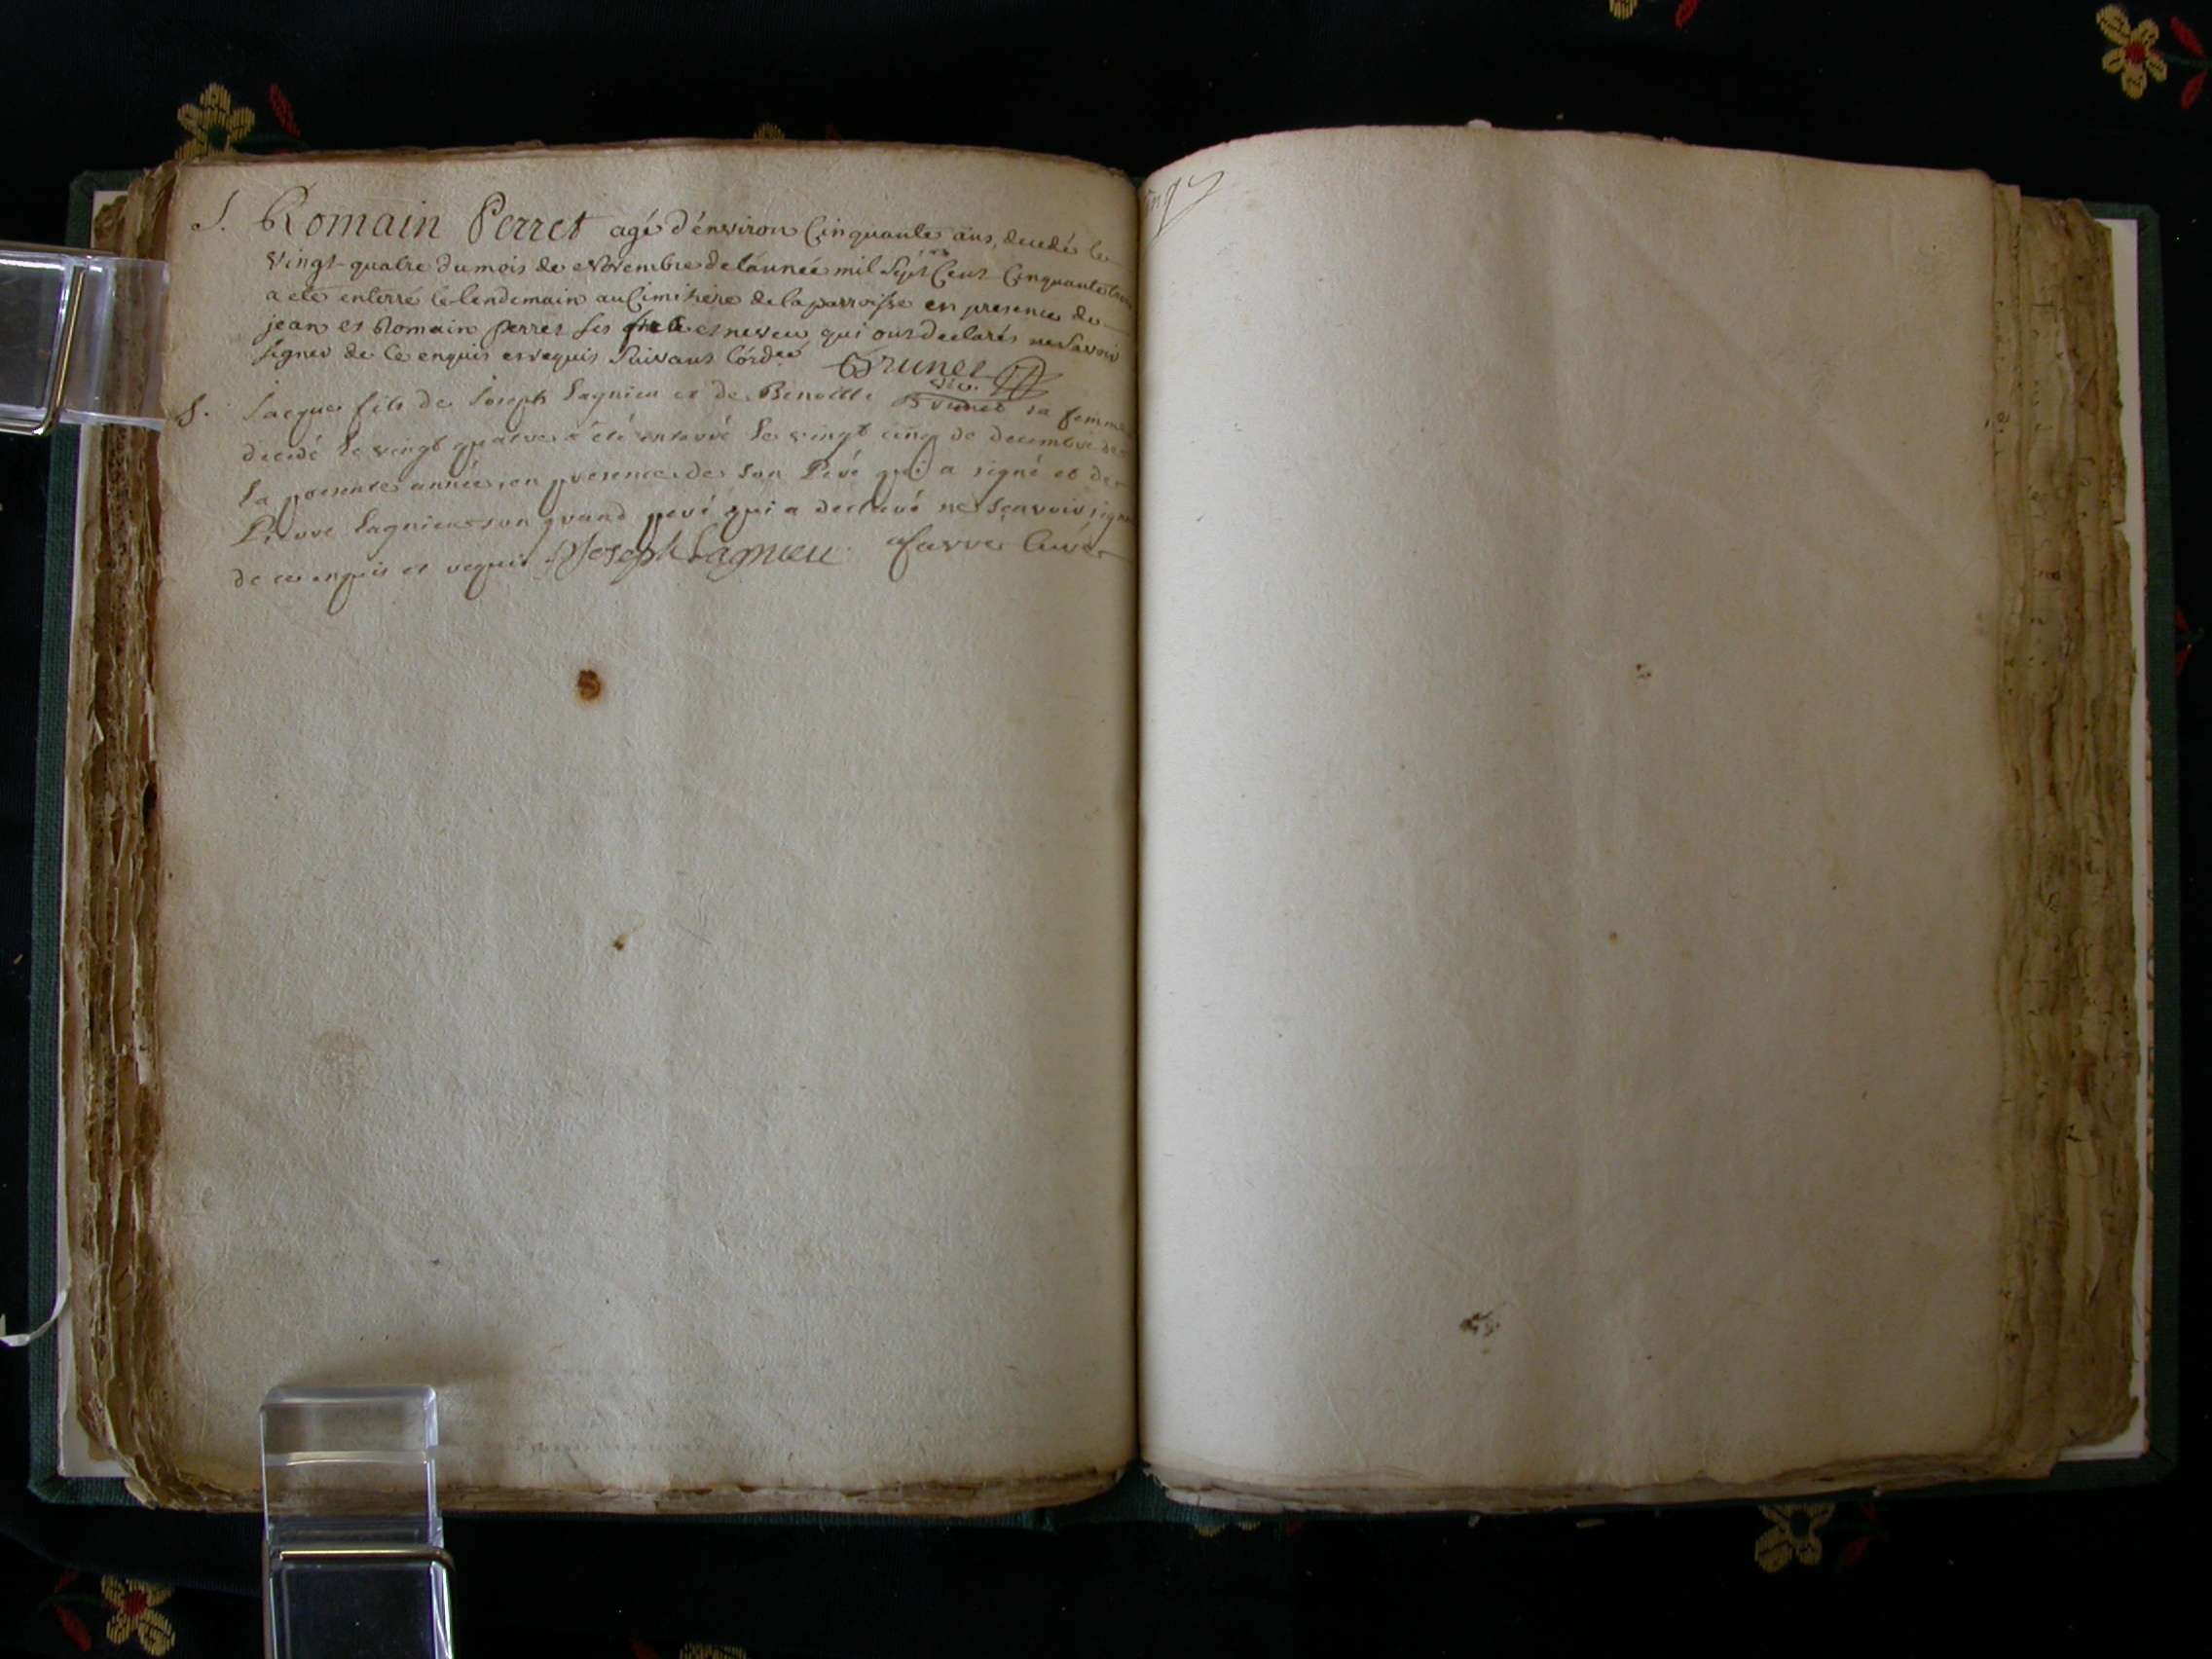 S. Romain Perret agé d'énviron Cinquante ans, decedé le
vingt-quatre du mois de Novembre de l'année mil Sept Cent Cinquante
a eté enterré le lendemain au Cimitiére de la parroisse en presence de
jean et Romain perret ses frere et neveu qui ont declarés ne savoir
signer de ce enquis et requis suivant l'órd.ce Brunet
vic.
S. Jacque fils de Joseph Lagnieu et de Benoitte Brunet sa femme
decedé le vingt quatre a été enterré le vingt cinq de decembre de
la presente année, en presence de son Peré qui a signé et de
Pierre Lagnieu son grand peré qui a declaré ne sçavoir signer
de ce enquis et requis Joseph Lagnieu favre Curé